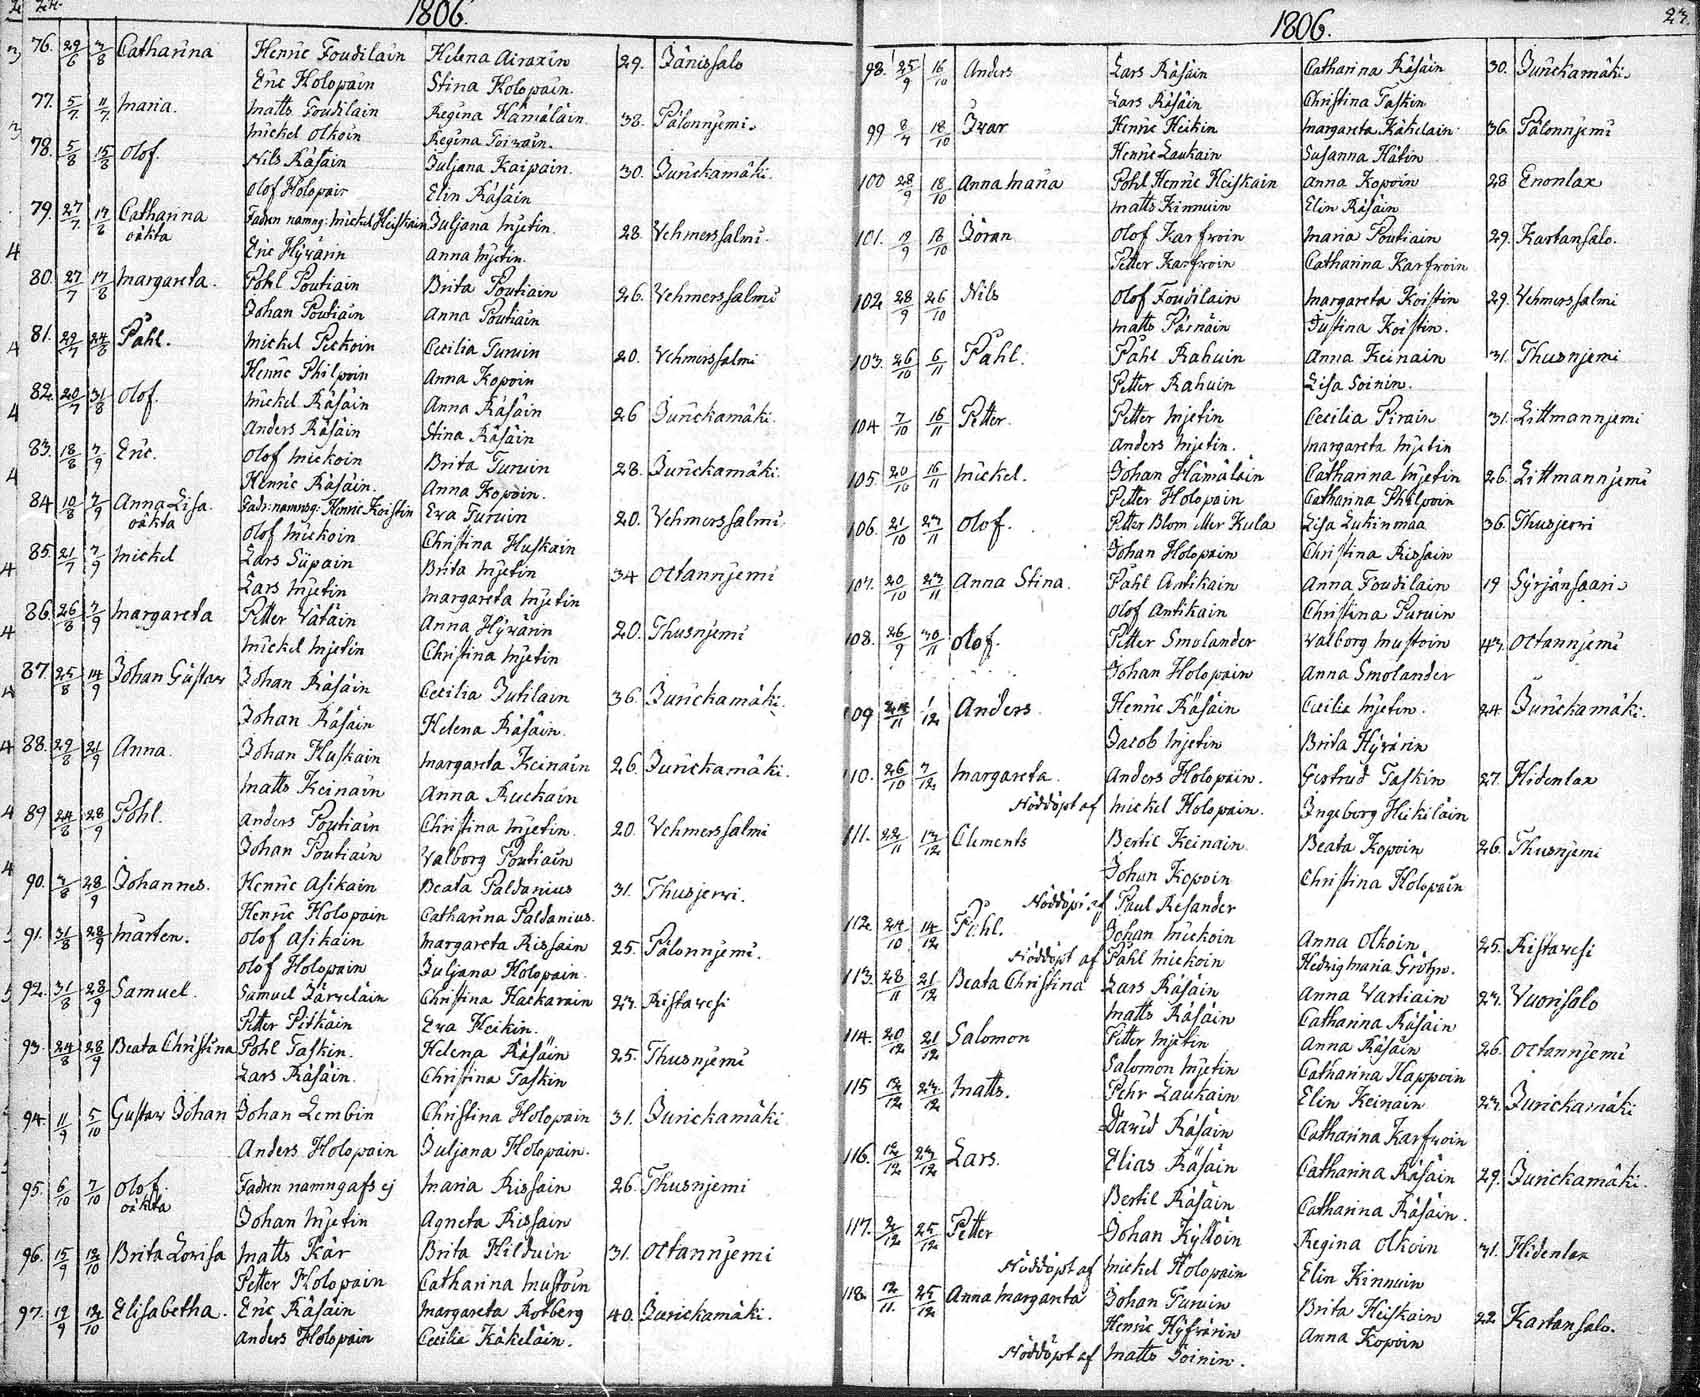 1806.
76. 29/6 3/8 Catharina Henric Foudilain Helena Airaxin 29. Jänissalo
Eric Holopain Stina Holopain.
77. 5/7 11/7 Maria. Matts Foudilain Regina Hämäläin 38. Pälonnjemi.
Mickel Olkoin Regina Toivain.
78. 5/8 15/8 Olof. Nils Räsäin Juljana Kaipain. 30. Jurickamäki.
Olof Holopair Elin Räsäin
79. 27/7 17/8 Catharina Fadren namng: Mickel Heiskain Juljana Mjetin. 28. Vehmerssalmi.
oäkta Eric Hÿvärin Anna Mjetin.
80. 27/7 17/8 Margareta. Pohl Poutiain Brita Poutiain 26. Vehmerssalmi
Johan Poutiain Anna Poutiain
81. 29/7 24/8 Påhl. Mickel Pickoin Cecilia Turuin 20. Vehmerssalmi
Henric Philpoin Anna Kopoin
82. 20/7 31/8 Olof. Mickel Räsäin Anna Räsäin 26 Jurickamäki.
Anders Räsäin Stina Räsäin
83. 18/8 7/9 Eric. Olof Mickoin Brita Turuin 28. Jurickamäki.
Henric Räsäin. Anna Kopoin.
84 10/8 7/9 Anna Lisa. Fadr: namng: Henric Koistin Eva Turuin 20. Vehmerssalmi.
oäkta Olof Mickoin Christina Huskain
85. 21/7 7/9 Mickel Lars Süpain Brita Mjetin 34 Octannjemi
Lars Mjetin Margareta Mjetin
86. 26/8 7/9 Margareta Petter Vätäin Anna Hÿvärin 20. Thusnjemi
Mickel Mjetin Christina Mjetin
87. 25/8 14/9 Johan Gustav Johan Räsäin Cecilia Jutilain 36. Jurickamäki.
Johan Räsäin Helena Räsäin.
88. 29/8 21/9 Anna. Johan Huskain Margareta Keinäin 26. Jurickamäki.
Matts Keinäin Anna Ruckain
89 24/8 28/9 Pohl. Anders Poutiain Christina Mjetin. 20. Vehmerssalmi
Johan Poutiain Valborg Poutiain
90. 3/8 28/9 Johannes. Henric Asikain Beata Paldanius 31. Thusjerwi.
Henric Holopain Catharina Paldanius.
91. 31/8 28/9 Mårten. Olof Asikain Margareta Rissain 25. Pälonnjemi.
Olof Holopain Juljana Holopain.
92. 31/8 28/9 Samuel. Samuel Järveläin Christina Hackarain 27. Ristavesi
Petter Pitkäin Eva Heikin.
93. 24/8 28/9 Beata Christina Pohl Taskin. Helena Räsäin 25. Thusnjemi
Lars Räsäin. Christina Taskin
94. 11/9 5/10 Gustav Johan Johan Lembin Christina Holopain 31. Jurickamäki
Anders Holopain Juljana Holopain.
95. 6/10 7/10 Olof. Fadren namngafs ej Maria Rissain 26. Thusnjemi
oäkta Johan Mjetin Agneta Rissain
96. 15/9 12/10 Brita Lovisa Matts Kär Brita Hilduin 31. Octannjemi
Petter Holopain Catharina Mustoin
97. 19/9 12/10 Elisabetha. Eric Räsäin Margareta Rotberg 40. Jurickamäki.
Anders Holopain Cecilia Käkeläin.
1806. 27.
98. 25/9 16/10 Anders Lars Räsäin Catharina Räsäin 30. Jurickamäki.
Lars Räsäin Christina Taskin
99 8/7 18/10 Ivar Henric Heikin Margareta Käkelain. 36. Pälonnjemi
Henric Laukain Susanna Hätin
100 28/9 18/10 Anna Maria Pohl Henric Heiskain Anna Kopoin 28 Enonlax
Matts Kinnuin Elin Räsäin
101. 19/9 18/10 Jöran Olof Karfwoin Maria Poutiain 29. Kartansalo.
Petter Karfwoin Catharina Karfwoin
102 28/9 26/10 Nils Olof Foudilain Margareta Koistin 29. Vehmerssalmi
Matts Pärnäin Justina Koistin.
103. 26/10 6/11 Påhl. Påhl Rahuin Anna Keinain 31. Thusnjemi
Petter Rahuin Lisa Soinin.
104 7/10 16/11 Petter. Petter Mjetin Cecilia Pirain 31. Littmannjemi
Anders Mjetin. Margareta Mjetin
105. 20/10 16/11 Mickel. Johan Hämäläin Catharina Mjetin 26. Littmannjemi
Petter Holopain Catharina Philpoin
106. 21/10 27/11 Olof. Petter Blom eller Kula Lisa Lukinmaa 36. Thusjerwi
Johan Holopain Christina Rissain
107. 20/10 23/11 Anna Stina. Påhl Antikain Anna Foudilain 19 Sÿrjänsaari.
Olof Antikain Christina Turuin
108. 26/9 30/11 Olof. Petter Smolander Valborg Mustoin 47. Octannjemi
Johan Holopain Anna Smolander
109 24/11 1/12 Anders Henric Räsäin Cecilia Mjetin. 24 Jurickamäki.
Jacob Mjetin Brita Hÿvärin
110. 26/10 7/12 Margareta. Anders Holopain. Gertrud Taskin 27. Hidenlax
Nöddöpt af Mickel Holopain. Ingeborg Heikiläin
111. 22/11 13/12 Clements Bertil Keinain. Beata Kopoin 26. Thusnjemi
Johan Kopoin Christina Holopain
Nöddöpt af Paul Resander
112 24/10 14/12 Påhl. Johan Mickoin Anna Olkoin 25. Ristavesi
Nöddöpt af Påhl Mickoin Hedvig Maria Gröhn.
113. 28/11 21/12 Beata Christina Lars Räsäin Anna Vartiain 27. Vuorisalo
Matts Räsäin Catharina Räsäin
114. 20/12 21/12 Salomon Petter Mjetin Anna Räsäin 26. Octannjemi
Salomon Mjetin Catharina Happoin
115 12/12 27/12 Matts. Pehr Laukain Elin Keinain 27. Jurickamäki
David Räsäin Catharina Karfwoin
116. 12/12 27/12 Lars. Elias Räsäin Catharina Räsäin 29. Jurickamäki.
Bertil Räsäin Catharina Räsäin.
117. 2/12 25/12 Petter Johan Kÿllöin Regina Olkoin 31. Hidenlax
Nöddöpt af Mickel Holopain Elin Kinnuin
118. 12/11. 25/12 Anna Margareta Johan Turuin Brita Heiskain 22 Kartansalo.
Henric Hÿfvärin Anna Kopoin
Nöddöpt af Matts Soinin.